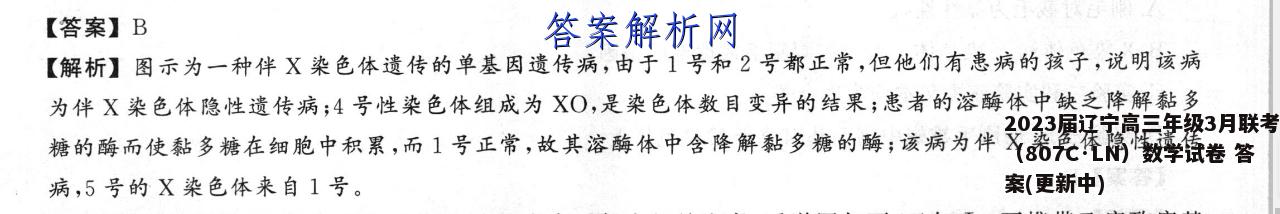 【答案】B
答案解析网
【解析】图示为一种伴 X 染色体遗传的单基因遗传病,由于 1 号和 2 号都正常,但他们有患病的孩子,说明该病
为伴 X 染色体隐性遗传病;4 号性染色体组成为 XO,是染色体数目变异的结果;患者的溶酶体中缺乏降解黏多
糖的酶而使黏多糖在细胞中积累,而 1 号正常,故其溶酶体中含降解黏多糖的酶;该病为伴 X 染色体隐性遗传
病,5 号的 X 染色体来自 1 号。
2023届辽宁高三年级3月联考
(807C·LN) 数学试卷 答
案(更新中)